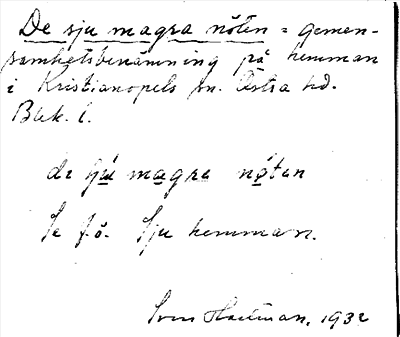 De sju magra nöten = gemen-
samhetsbenämning på hemman
i Kristianopels sn. Östra hd.
Blek. l.
de ɧú magrɐ nö́tɐn
Se fö. Sju hemman.
Sven Hallman, 1932